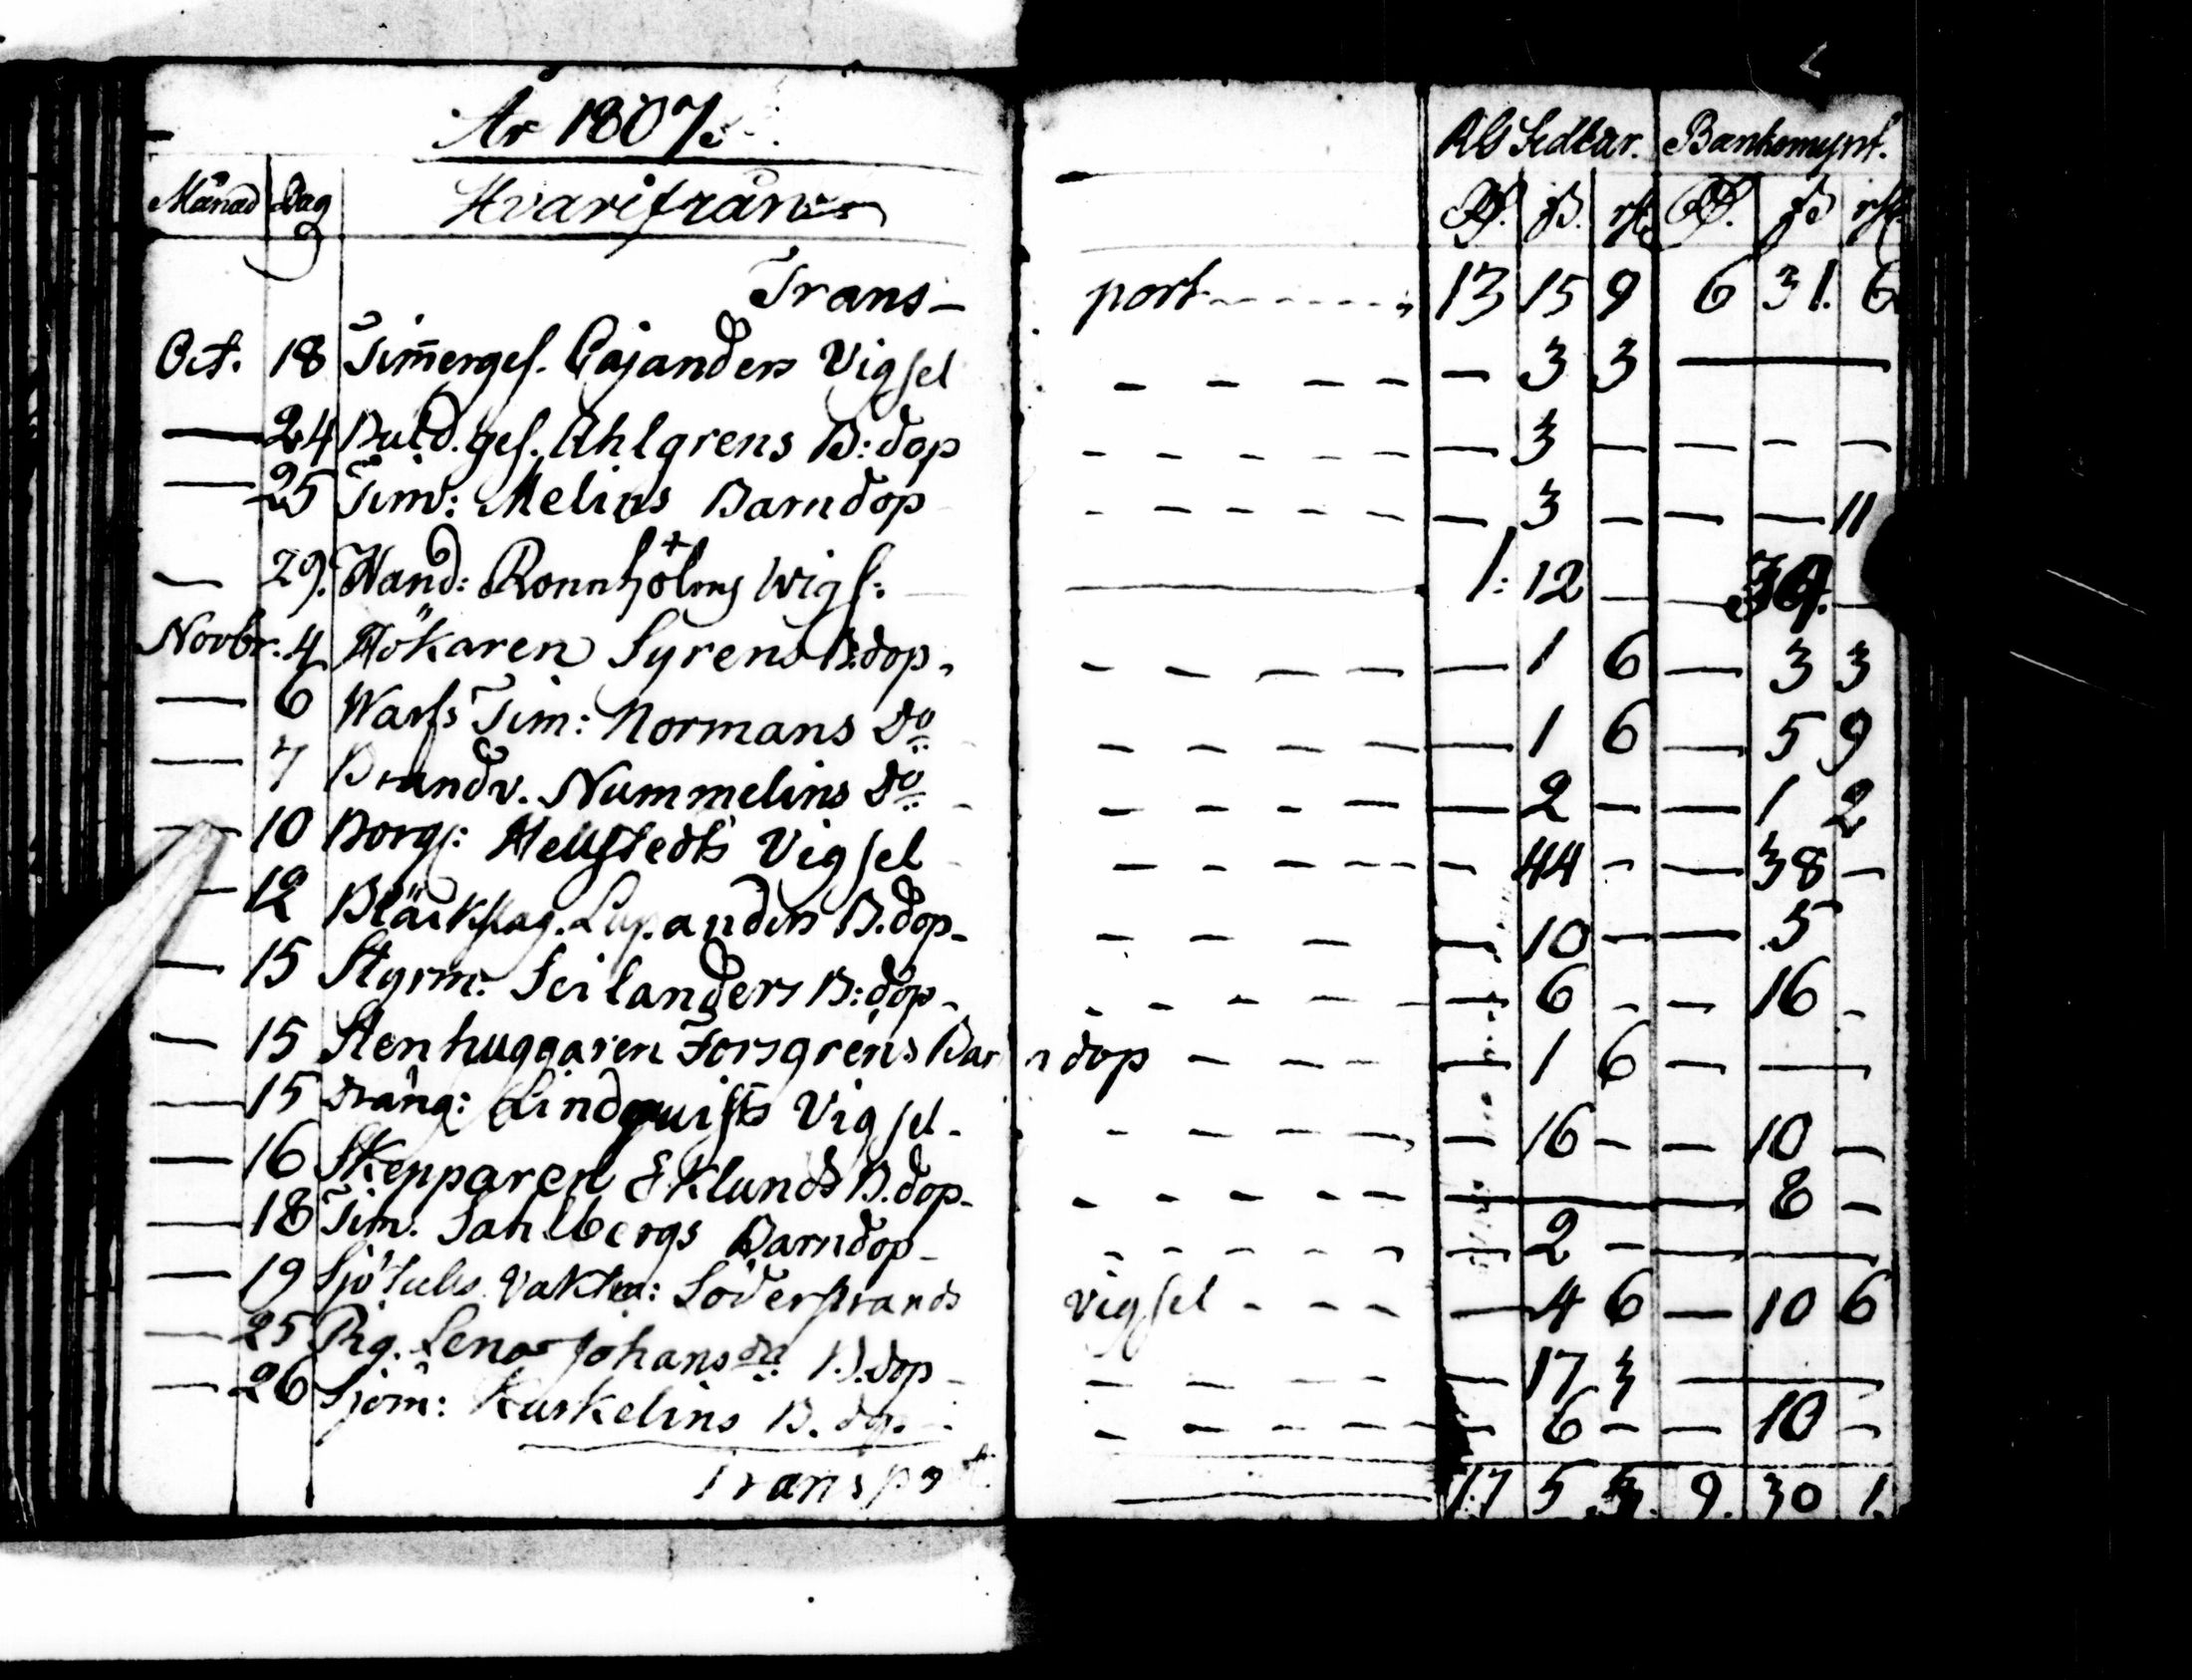 År 1807.
RG Sedlar. Bankomynt.
Månad Dag Hvarifrån Rd. ß. rst. Rd. ß rst.
Transport - - - - - 13 15 9 6 31. 6
Oct. 18 Tim̄ergef. Cajanders Vigsel - - - - — 3 3 —
— 24 Buld.ges. Ahlgrens B:dop - - - - - — 3 — — - —
— 25 Tim: Melins Barndop - - - - - — 3 — — — 11
— 29. Hand: Rönnholms Wigs: — 1: 12 — — 39. —
Novbr. 4 Hökaren Syrens B:dop. - - - - — 1 6 — 3 3
— 6 Warfs Tim: Normans Do - - - - - — 1 6 — 5 9
— 7 Brandv. Nummelins Do - - - - - — 2 — — 1 2
— 10 Borgs: Hellstedts Vigsel - - - - - - 44 - — 38 —
— 12 Bläckslag. Lupanders B.dop - - - - — 10 — — 5
— 15 Styrm: Seilanders B:dop - - - - - - — 6 - — 16 -
— 15 Stenhuggaren Forsgréns Barndop - - - - — 1 6 — —
— 15 Dräng: Lindquists Vigsel - - - - - — 16 - — 10 —
— 16 Skepparen Eklunds B.dop - - - - - — 8 —
— 18 Tim. Sahlbergs Barndop - - - - - — 2 — — —
— 19 Sjötulls Vaktm: Söderstrands vigsel - - - — 4 6 — 10 6
— 25 Pig. Lena Johansda B.dop - - - - - — 17 3 —
— 26 Sjöm: Kuskelins B.dop - - - - - — 6 — — 10 -
Transport — 17 5 3. 9. 30 1.